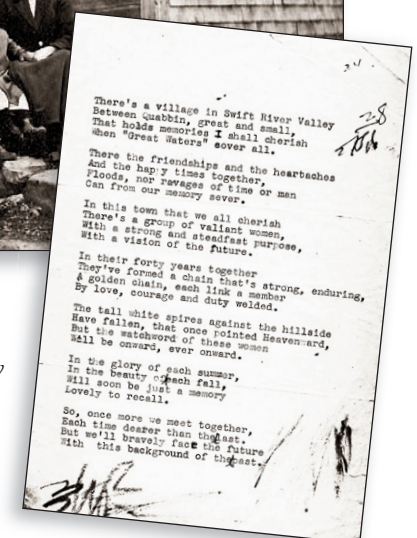 24
28
There's a village in Swift River Valley
Between Quabbin, great and small,
That holds memories I shall cherish
When "Great Waters" cover all.
There the friendships and the heartaches
And the happy times together,
Floods, nor ravages of time or man
Can from our memory sever.
In this town that we all cherish
There's a group of valiant women,
With a strong and steadfast purpose,
With a vision of the future.
In their forty years together
They've formed a chain that's strong, enduring,
A golden chain, each link a member
By love, courage and duty welded.
The tall white spires against the hillside
Have fallen, that once pointed Heavenward,
But the watchword of these women
Will be onward, ever onward.
In the glory of each summer,
In the beauty of each fall,
Will soon be just a memory
Lovely to recall.
So, once more we meet together,
Each time dearer than the last.
But we'll bravely face the future
With this background of the past.